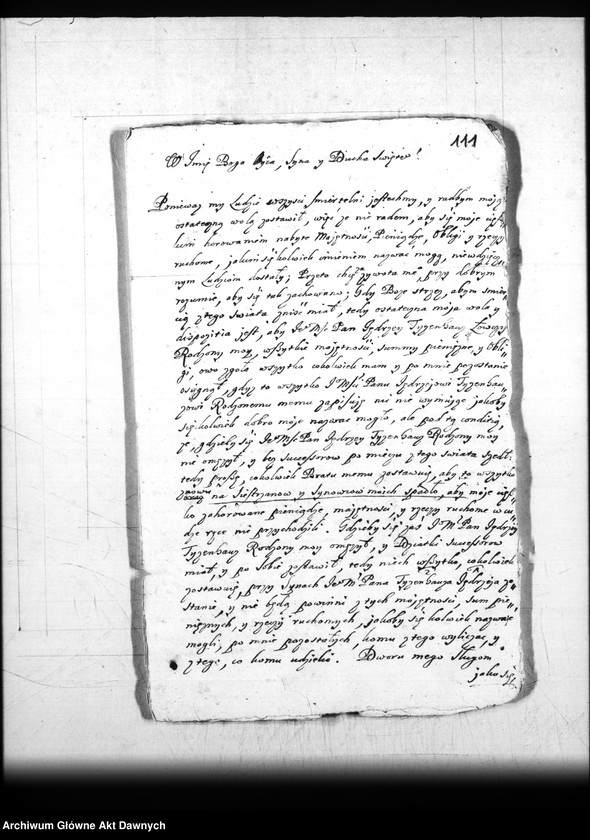 111
W Imię Boga Oyca, Syna y Ducha Swiętego!
Ponieważ my Ludzie wszyscy smiertelni jestesmy, y radbym moją
ostateczną wolą zostawił, więc że nie radem, aby się moje cięż„
kim horowaniem nabyte Majętnosci, Pieniądze, Obligi y rzeczy
ruchome, jakimśkolwiek imieniem nazwac mogą, niewdzięcz„
nym Ludziom dostały; Przeto chcę zywota me°, przy dobrym
rozumie, aby się tak zachowano; Gdy Boze strzez, abym smier„
cią z tego swiata zniść miał, tedy ostateczna moja wola y
dispozitia jest, aby Je° Mć Pan Jędrzey Tyzenhauz Łowczy
Rodzony moy, wszytkie majętnosci, summy pieniężne, y Obli„
gi, owo zgoła wszytko cokolwiek mam y po mnie pozostanie
osiągnął, gdyż to wszytko I° Mści Panu Jędrzejowi Tyzenhau„
zowi Rodzonemu memu zapisuję nic nie wymując jakoby
się kolwiek dobro moje nazwac mogło, ale pod tą conditią
że, gdzieby się Je° Mść Pan Jędrzey Tyzenhauz Rodzony moy
nie ożenił, y bez successorow po mieczu z tego swiata szedł:
tedy proszę, cokolwiek Bratu memu zostawuię, aby to wszytko
znowu na Siestrzanow y Synowcow moich spadło, aby moje cięż„
ko zahorowane pieniądze, majętnosci, y rzeczy ruchome w cu„
dze ręce nie przychodzili. Gdzieby się zas I° Mć Pan Jędrzey
Tyzenhauz Rodzony moy ożenił, y Dziatki Successorow
miał, y po sobie zostawił, tedy niech wszytko, cokolwiek
zostawuię, przy Synach Je° Mć Pana Tyzenhauza Jędrzeja zo„
stanie, y nie będą powinni z tych majętnosci, sum pie„
nięznych, y rzeczy ruchomych, jakoby się kolwiek nazwac
mogli, po mnie pozostałych, komu z tego wyliczac, y
z tego, co komu udzielić. Dworu mego Sługom
jako się
Archiwum Główne Akt Dawnych